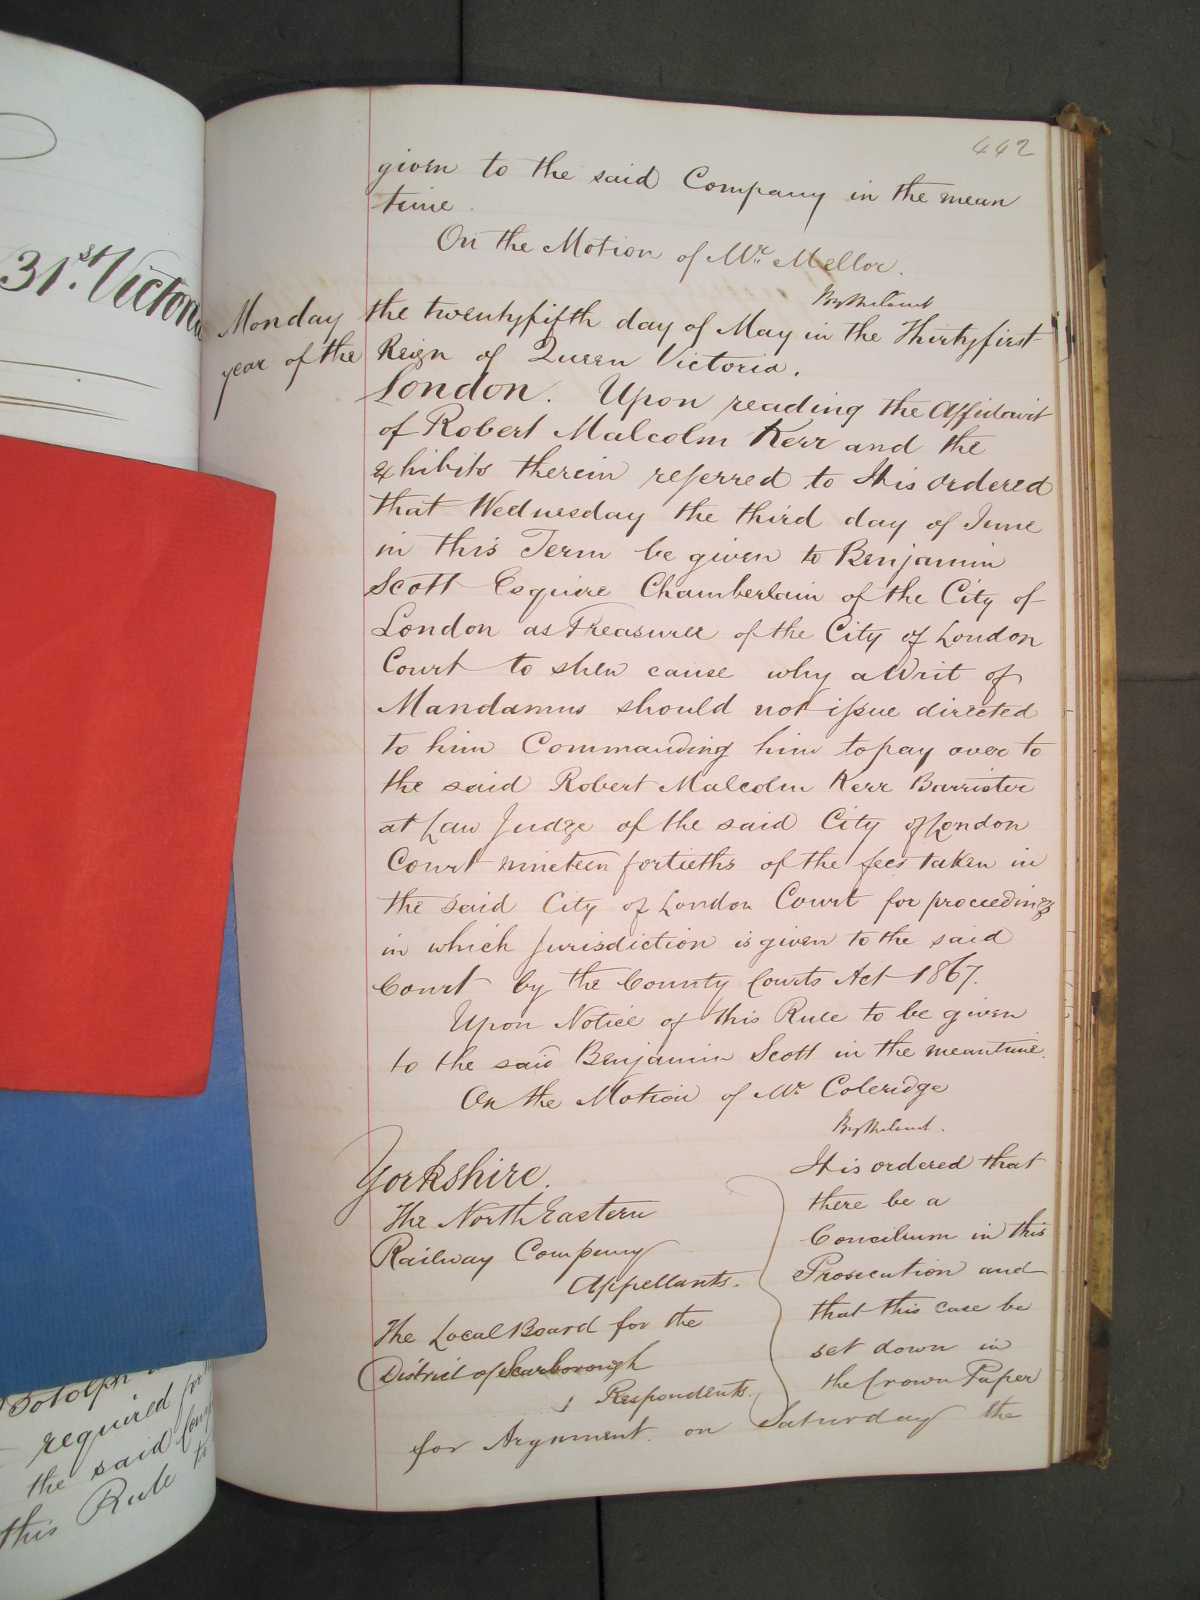 442
given to the said Company in the mean
time.
On the Motion of Mr. Mellor.
By the Court
31st. Victoria
Monday the twentyfifth day of May in the Thirtyfirst
year of the Reign of Queen Victoria.
London. Upon reading the Affidavit
of Robert Malcolm Kerr and the
exhibits therein referred to It is ordered
that Wednesday the third day of June
in this Term be given to Benjamin
Scott Esquire Chamberlain of the City of
London as Treasurer of the City of London
Court to shew cause why a Writ of
Mandamus should not issue directed
to him Commanding him to pay over to
the said Robert Malcolm Kerr Barrister
at Law Judge of the said City of London
Court nineteen fortieths of the fees taken in
the said City of London Court for proceedings
in which Jurisdiction is given to the said
Court by the County Courts Act 1867.
Upon Notice of this Rule to be given
to the said Benjamin Scott in the meantime.
On the Motion of Mr Coleridge
By the Court.
Yorkshire.
The North Eastern
Railway Company
Appellants.
The Local Board for the
District of Scarborough
Respondents.
It is ordered that
there be a
Concilium in this
Prosecution and
that this case be
set down in
the Crown Paper
for Argument on Saturday the
Botolph
required
the said
this Rule to